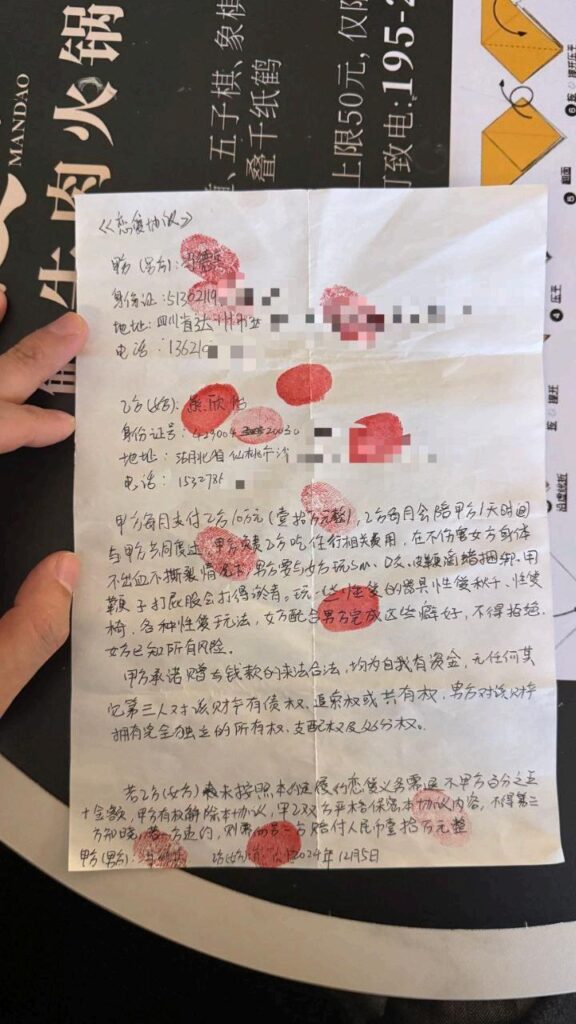 MANDAO
牛肉火锅
、五子棋、象棋
叠千纸鹤
上限50元,仅限
可致电:195-2
《恋爱协议》
甲方(男方):
身份证:51302119
地址:四川省达州市
电话:13621
乙方(女方): 欣怡
身份证号:429004 20030
地址:湖北省仙桃市沙
电话:1532786
甲方每月支付乙方10万元(壹拾万元整),乙方每月会陪甲方1天时间
与甲方共同度过,甲方负责乙方吃住行相关费用,在不伤害女方身体
不出血不撕裂情况下男方要与女方玩Sm、 皮鞭滴蜡捆绑.用
鞭子打屁股会打得淤青。玩一些性爱的器具性爱秋千、性爱
椅、各种性爱玩法,女方配合男方完成这些癖好,不得拒绝.
女方已知所有风险。
甲方承诺赠与钱款的来法合法,均为自我有资金,无任何其
它第三人对该财产有债权、追索权或共有权,男方对该财产
拥有完全独立的所有权、支配权及处分权。
若乙方(女方)未按照本 履行恋爱义务需退还甲方百分之五
十金额,甲方有权解除本协议,甲乙双方严格保密本协议内容,不得第三
方知晓,若一方违约,则需向另一方赔付人民币壹拾万元整
甲方(男方):
乙方(女方): 2024年12月5日